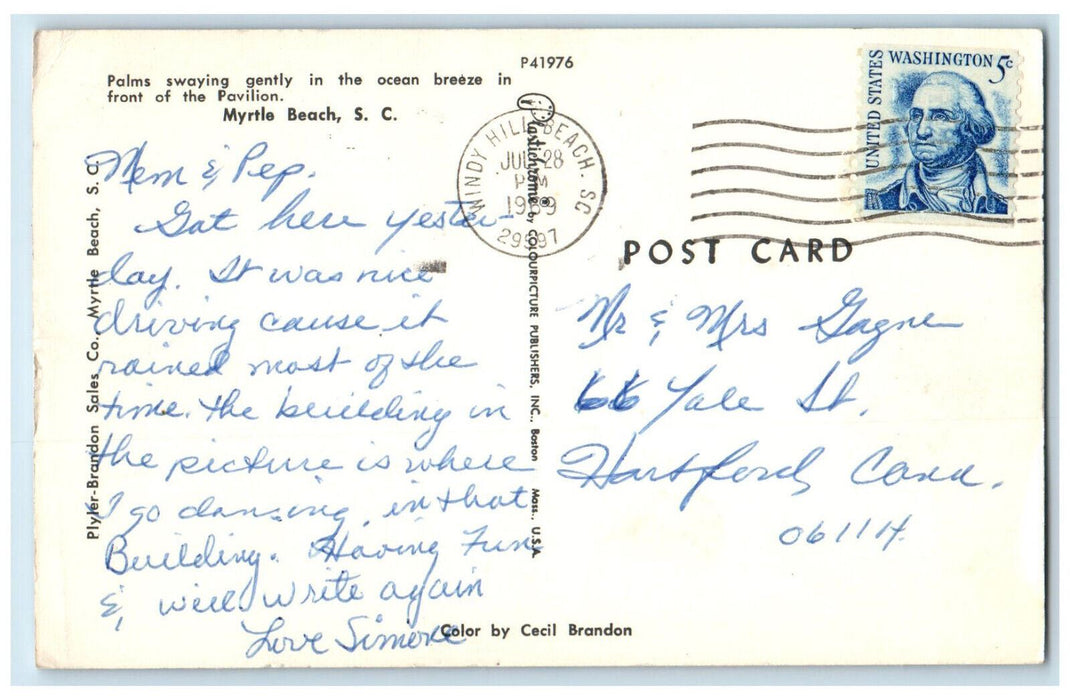 P41976
Palms swaying gently in the ocean breeze in
front of the Pavilion.
Myrtle Beach, S. C.
UNITED STATES
WASHINGTON 5c
WINDY HILL BEACH, SC
JUL 28
PM
1969
29597
POST CARD
Mem & Pep.
Got here yester-
day. It was nice
driving cause it
rained most of the
time. the building in
the picture is where
I go dancing, in that
Building. Having Fun
& will write again
Love Simone
Mr & Mrs Gagne
66 Yale St.
Hartford Conn.
06114
Plyler-Brandon Sales Co., Myrtle Beach, S. C.
Plastichrome ® by COLOURPICTURE PUBLISHERS, INC., Boston Mass., U.S.A.
Color by Cecil Brandon